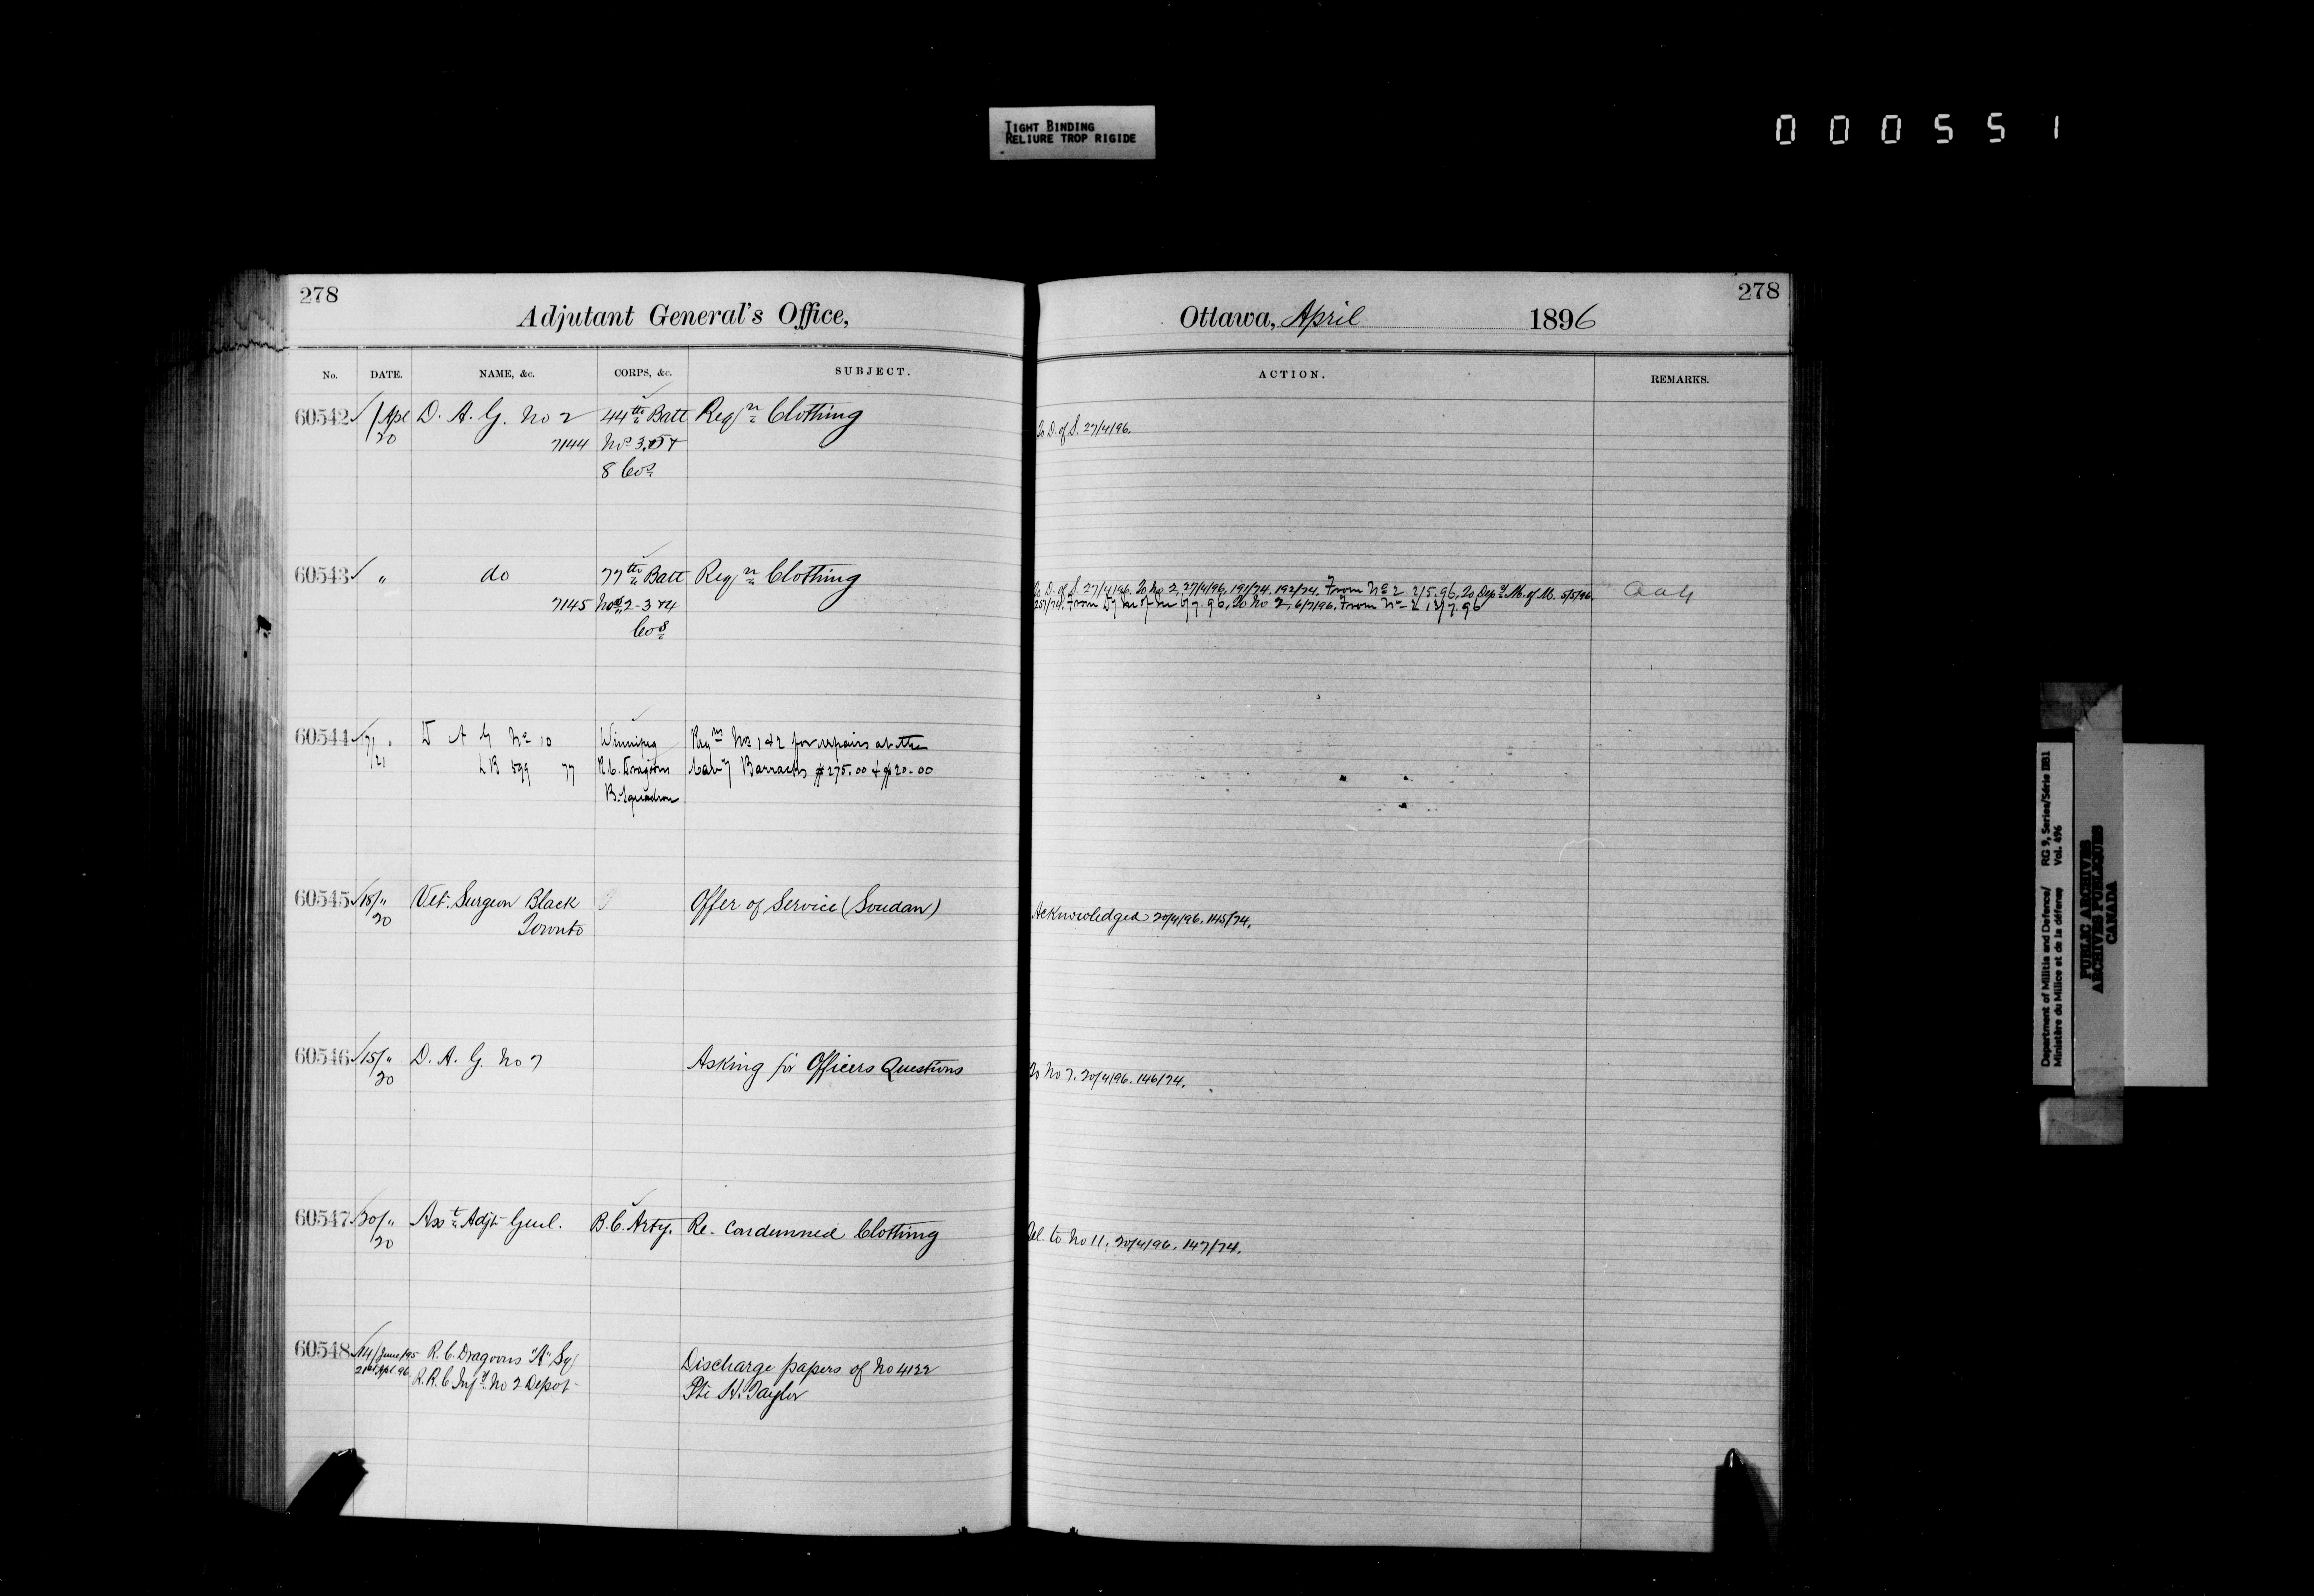 TIGHT BINDING
RELIURE TROP RIGIDE
000551
278
Adjutant General's Office,
Ottawa, April 1896
278
No. DATE. NAME, &c. CORPS, &c. SUBJECT. ACTION. REMARKS.
60542 1/Apl D. A. G. No 2 44th Batt Reqn Clothing
20 7144 No 3.5 &
8 Cos
To D. of S. 27/4/96.
60543 " do 77th Batt Reqn Clothing
7145 Nos 2-3 & 4
Cos
To D. of S. 27/4/96. To No 2, 27/4/96, 191/74. 192/74. From No 2 2/5.96, To Depy M. of M. 5/5/96.
257/74. From Dy M of M 6/7.96, To No 2, 6/7/96, From No 2 13/7.96
60544 17/ " D A G No 10 Winnipeg Reqns Nos 1 & 2 for repairs at the
21 LB 599 77 R.C. Dragoons Cavy Barracks $275.00 & $20.00
B. Squadron
60545 18/ " Vet. Surgeon Black Offer of Service (Soudan)
20 Toronto
Acknowledged 20/4/96. 145/74.
60546 15/ " D. A. G. No 7 Asking for Officers Questions
20
To No 7. 20/4/96. 146/74.
60547 20/ " Asst Adjt Genl. B.C. Arty. Re- Condemned Clothing
20
Tel. to No 11. 20/4/96. 147/74.
60548 14/June/95 R.C. Dragoons "A" Sq
21st Apl. 96. R.R.C. Infy No 2 Depot
Discharge papers of No 4122
Pte H. Taylor
Department of Militia and Defence/ RG 9, Series/Série IIB1
Ministère du Milice et de la défense Vol. 496
PUBLIC ARCHIVES
ARCHIVES PUBLIQUES
CANADA